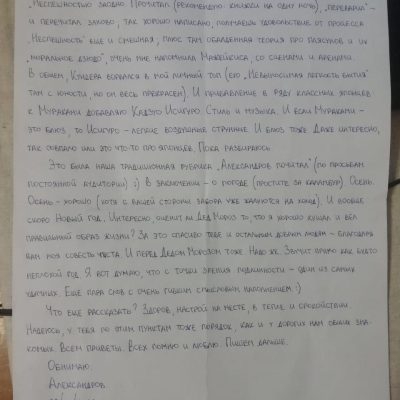 „Неспешностью" заодно. Прочитал (рекомендую. Книжки на одну ночь), „переварил" –
и перечитал заново, так хорошо написано, получаешь удовольствие от процесса.
„Неспешность" еще и смешная, плюс там обалденная теория про плясунов и их
„моральное дзюдо", очень мне напомнила Манежейкиса, со сценами и аренами.
В общем, Кундера ворвался в мой личный топ (его „Невыносимая легкость бытия"
там с юности, но он весь прекрасен). И прибавление в ряду классных японцев
к Мураками добавляю Кадзуо Исигуро. Стиль и музыка. И если Мураками –
это блюз, то Исигуро – легкие воздушные струнные. И блюз тоже. Даже интересно,
так совпало или это что-то про японцев. Пока разбираюсь.
Это была наша традиционная рубрика „Александров почитал" (по просьбам
постоянной аудитории) :) В заключении – о погоде (простите за каламбур). Осень.
Осень – хорошо (хотя с вашей стороны забора уже жалуются на холод). И вообще
скоро Новый год. Интересно, оценит ли Дед Мороз то, что я хорошо кушал и вел
правильный образ жизни? За это спасибо тебе и остальным добрым людям – благодаря
вам моя совесть чиста. И перед Дедом Морозом тоже. Надо же. Звучит прямо как будто
неплохой год. Я вот думаю, что с точки зрения подлинности – один из самых
удачных. Еще пара слов с очень гибким смысловым наполнением :)
Что еще рассказать? Здоров, настрой на месте, в тепле и спокойствии.
Надеюсь, у тебя по этим пунктам тоже порядок, как и у дорогих нам общих зна-
комых. Всем приветы. Всех помню и люблю. Пишем дальше.
Обнимаю.
Александров.